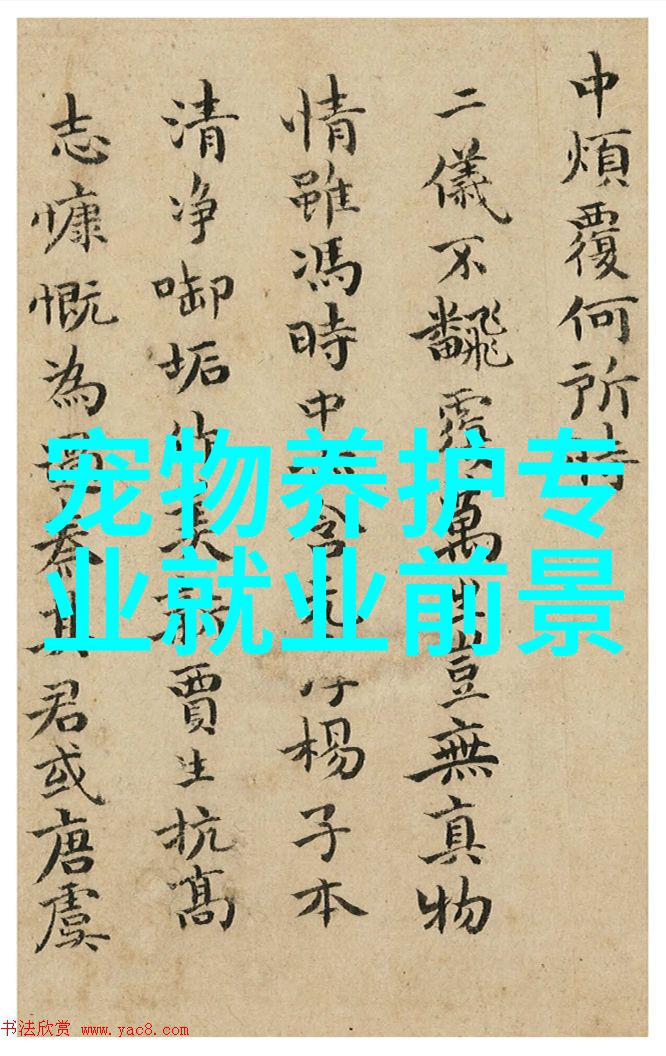 中煩覆何所
二儀不飜覆萬豈無真物
情雖馮時中含楊子本
清净啣垢美賈生抗高
志慷慨為奏其君或唐虞
宠物养护专
业就业前景
书法欣赏 www.yac8.com